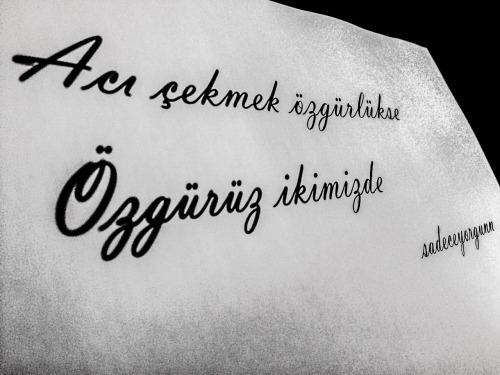 Acı çekmek özgürlükse
Özgürüz ikimizde
sadeceyorgunn